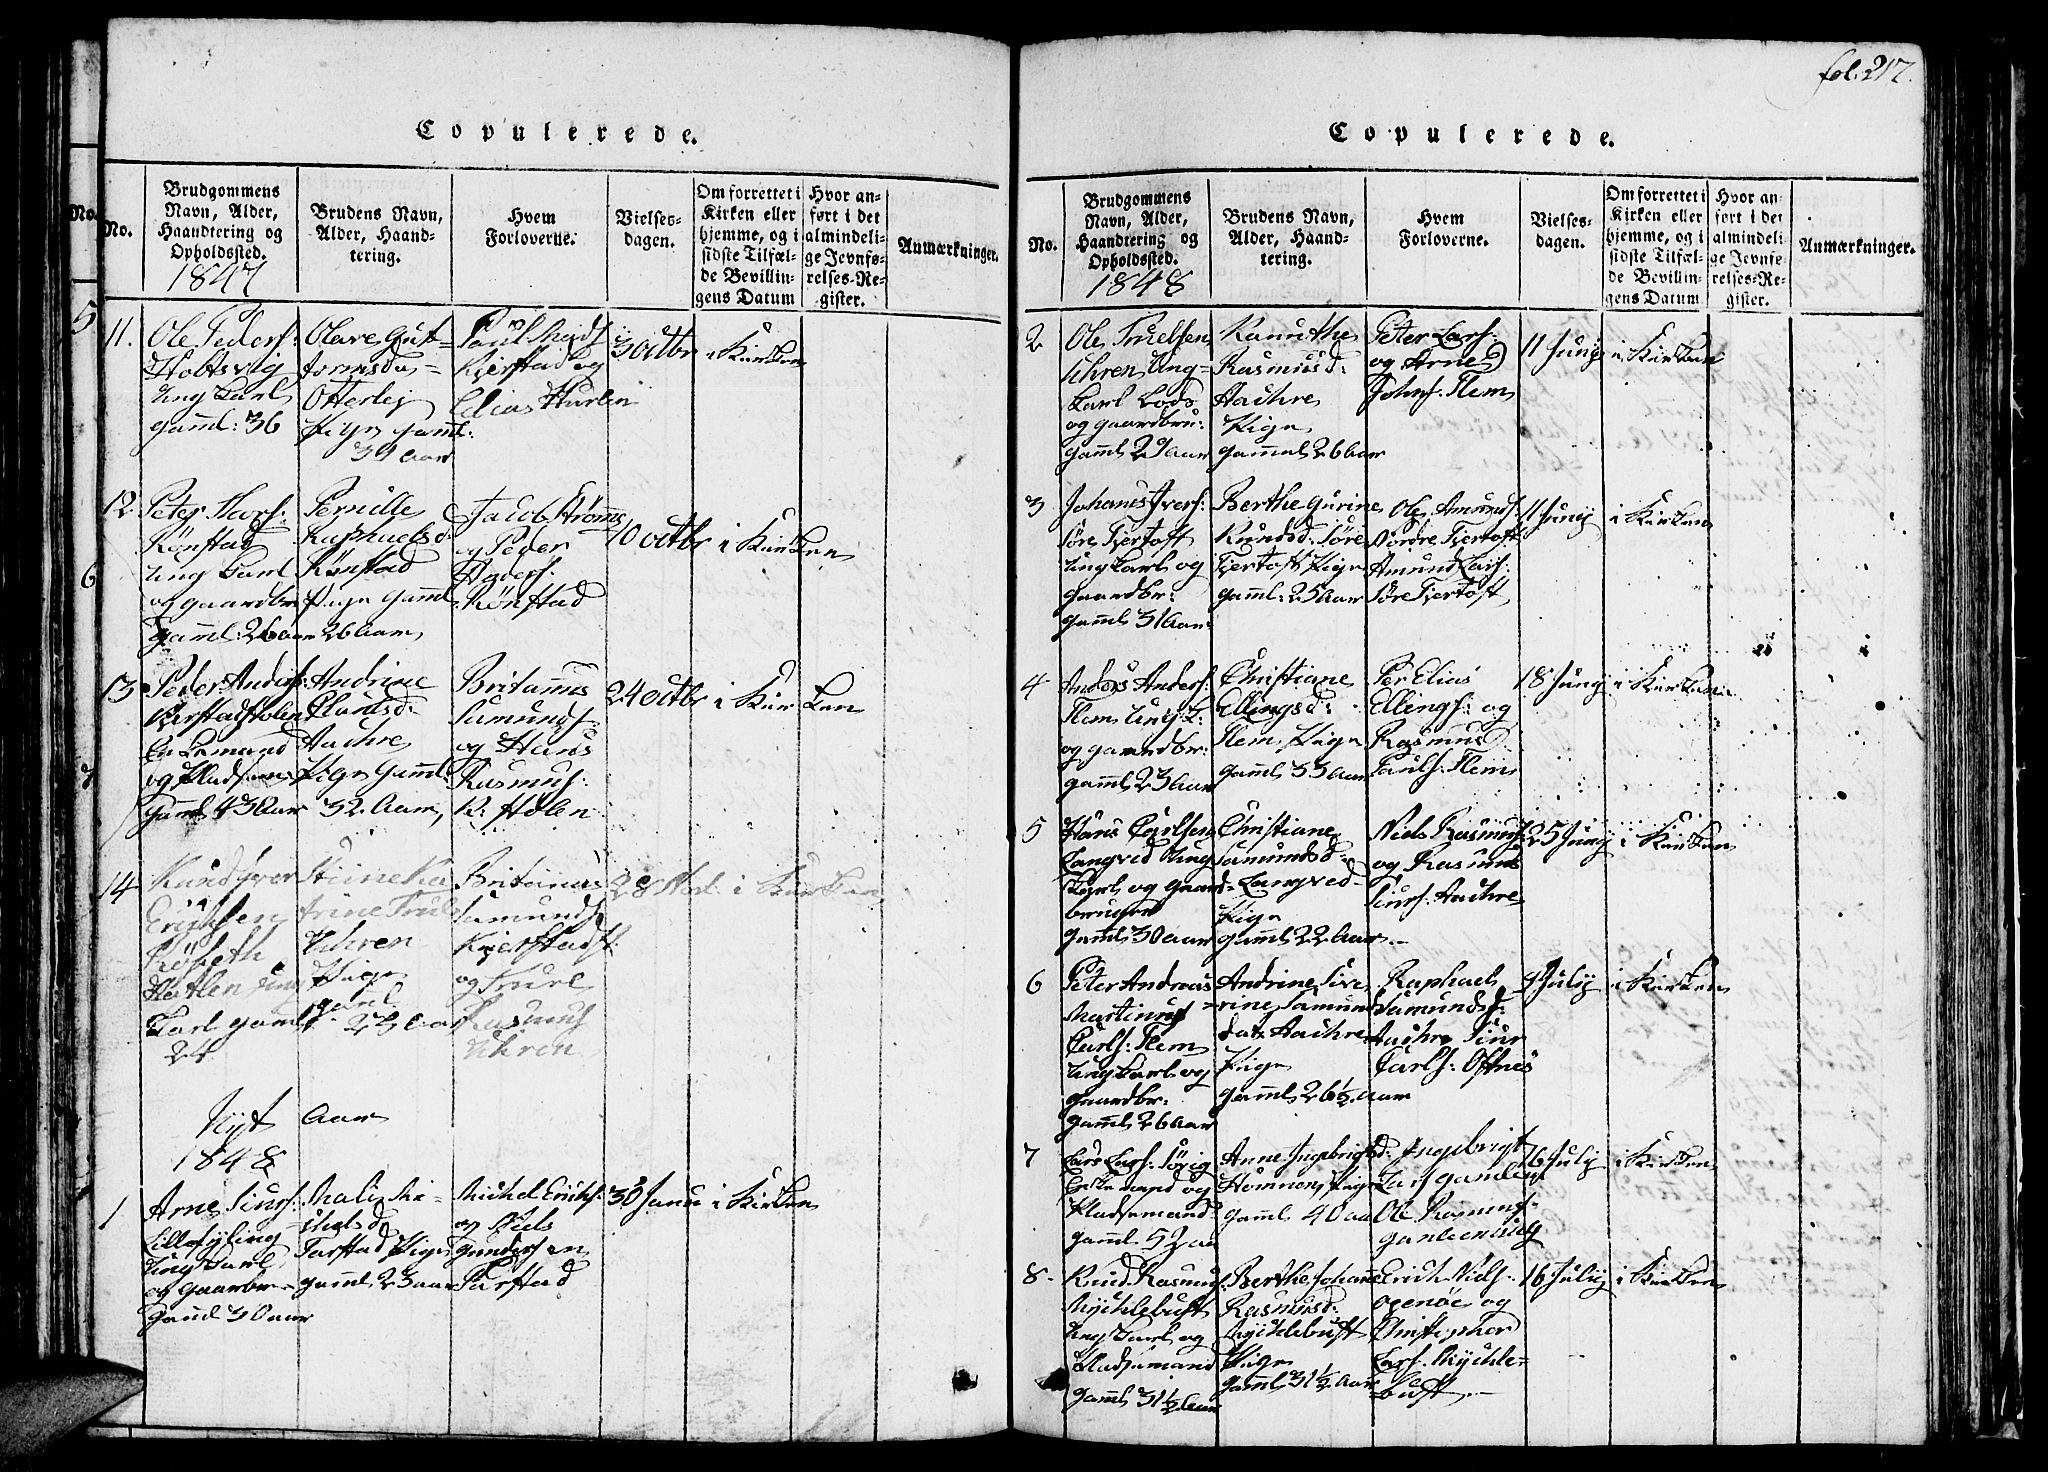 fol. 217.
Copulerede.
No.
Brudgommens
Navn, Alder,
Haandtering og
Opholdssted.
1847
Brudens Navn,
Alder, Haand-
tering.
Hvem
Forloverne.
Vielses-
dagen.
Om forrettet i
Kirken eller
hjemme, og i
sidste Tilfæl-
de Bevillin-
gens Datum
Hvor an-
ført i det
almindeli-
ge Jevnfø-
relses-Re-
gister.
Anmærkninger.
11.
Ole Peders:
Ung Karl
gaml: 36
Olave Gut-
tormsda-
Otterlej
Pige gaml:
39 Aar
Kjerstad og
Elias Hurlen
3 octbr
i Kirken
12
Rönstad
Ung Karl
og gaardbr
gaml: 26 aar
Pernille
Raphaelsd:
Rönstad
Pige gaml
26 Aar
Jacob Strøms
og Peder
Rönstad
10 octbr
i Kirken
13
Peder Anders:
Kierstadstolen
og Pladsm:
gaml 43 Aar
Andrine
Aachre
Pige gaml:
32 Aar
Britanus
Samunds:
og Hans
Rasmus:
K: Stolen
24 octbr
i Kirken
14
Knud Iver
Erichsen
Ung
Karl gaml
24
Stine Ka
trine Truls
Uhren
Pige
gaml
Britanus
Samunds:
Kjerstadst:
og Truls
Rasmus
Uhren
28
i Kirken
Nyt Aar
1848
1
Arne Siurs:
Lillefylling
Ung Karl
og gaardbr
gaml 30 aar
Mali Mi-
chelsd
Tarstad Pige
gaml 23 aar
Michel Erichs:
og Niels
Gundersen
Tarstad
30 Janu
i Kirken
Copulerede.
No.
Brudgommens
Navn, Alder,
Haandtering og
Opholdssted.
1848
Brudens Navn,
Alder, Haand-
tering.
Hvem
Forloverne.
Vielses-
dagen.
Om forrettet i
Kirken eller
hjemme, og i
sidste Tilfæl-
de Bevillin-
gens Datum
Hvor an-
ført i det
almindeli-
ge Jevnfø-
relses-Re-
gister.
Anmærkninger.
2
Ole Truelsen
Uhren Ung-
Karl Lods
og gaardbru:
gaml 29 Aar
Kanuthe
Rasmusd:
Aachre
Pige
gammel 26 Aar
Peter Lars:
og Arne
Johns: Flem
11 Juny
i Kirken
3
Johanes Ivers:
Søre Fjertoft
Ung Karl og
gaardbr:
gaml 31 Aar
Berthe Gurine
Knudsd: Søre
Fjertoft Pige
gaml: 25 Aar
Ole Amunds:
Nordre Fjertoft
Amund Lars:
Søre Fjertoft
11 Juny
i Kirken
4
Anders Anders:
Flem Ung K:
og gaardbr:
gaml 23 Aar
Christiane
Ellingsd:
Flem Pige
gaml 33 Aar
Per Elias
Ellings: og
Rasmus
Pauls: Flem
18 Juny
i Kirken
5
Hans Carlsen
Langved Ung
Karl og gaard-
bruger
gaml 30 aar
Christiane
Samundsd:
Langved
Pige
gaml 22 Aar
Niels Rasmus:
og Rasmus
Siurs: Aachre
25 Juny
i Kirken
6
Peter Andreas
Martinus
Carls: Flem
Ung Karl og
gaardbr:
gaml 26 Aar
Andrine Sive
rine Samunds
dat: Aachre
Pige
gaml 26½ aar
Raphael
Samunds:
Aachre Siur
Carls: Oftnes
9 July
i Kirken
7
Lars Lars: Søvig
Enkemand og
Pladsemand
gaml 52 aar
Anne Ingebrigtsd:
Hømnen Pige
gaml 40 aar
Ingebrigt
Ole Rasmus:
16 July
i Kirken
8
Knud Rasmus:
Mychlebust
Ung Karl og
Pladsemand
gaml 31½ Aar
Berthe Johanne
Rasmusd:
Mychlebust
Pige
gaml 31½ Aar
Erich Niels:
og
Christopher
Lars: Mychle-
bust
16 July
i Kirken